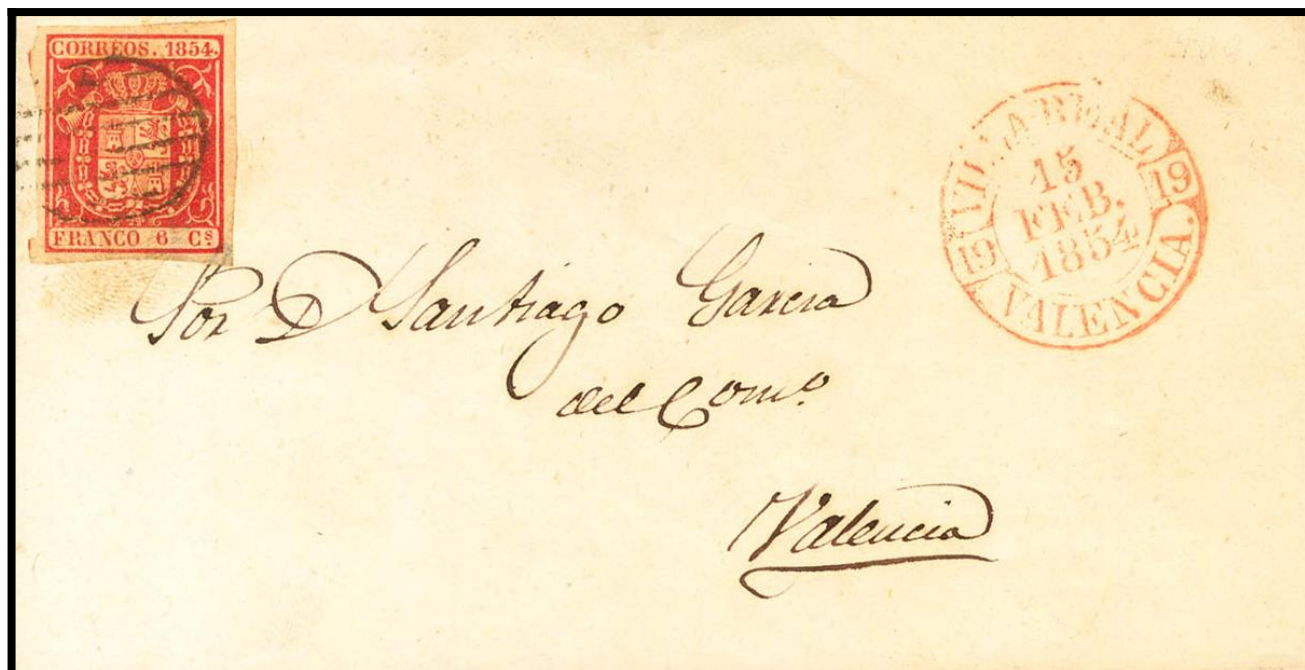 CORREOS. 1854.
FRANCO 6 Cs
VILLAREAL
19 19
15
FEB.
1854
VALENCIA.
Sor D Santiago Garcia
del Como
Valencia